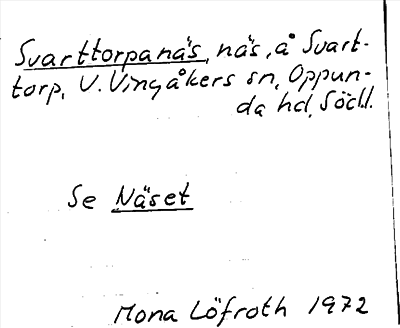 Svarttorpanäs, näs, å Svart-
torp, V. Vingåkers sn, Oppun-
da hd, Södl.
Se Näset
Mona Löfroth 1972